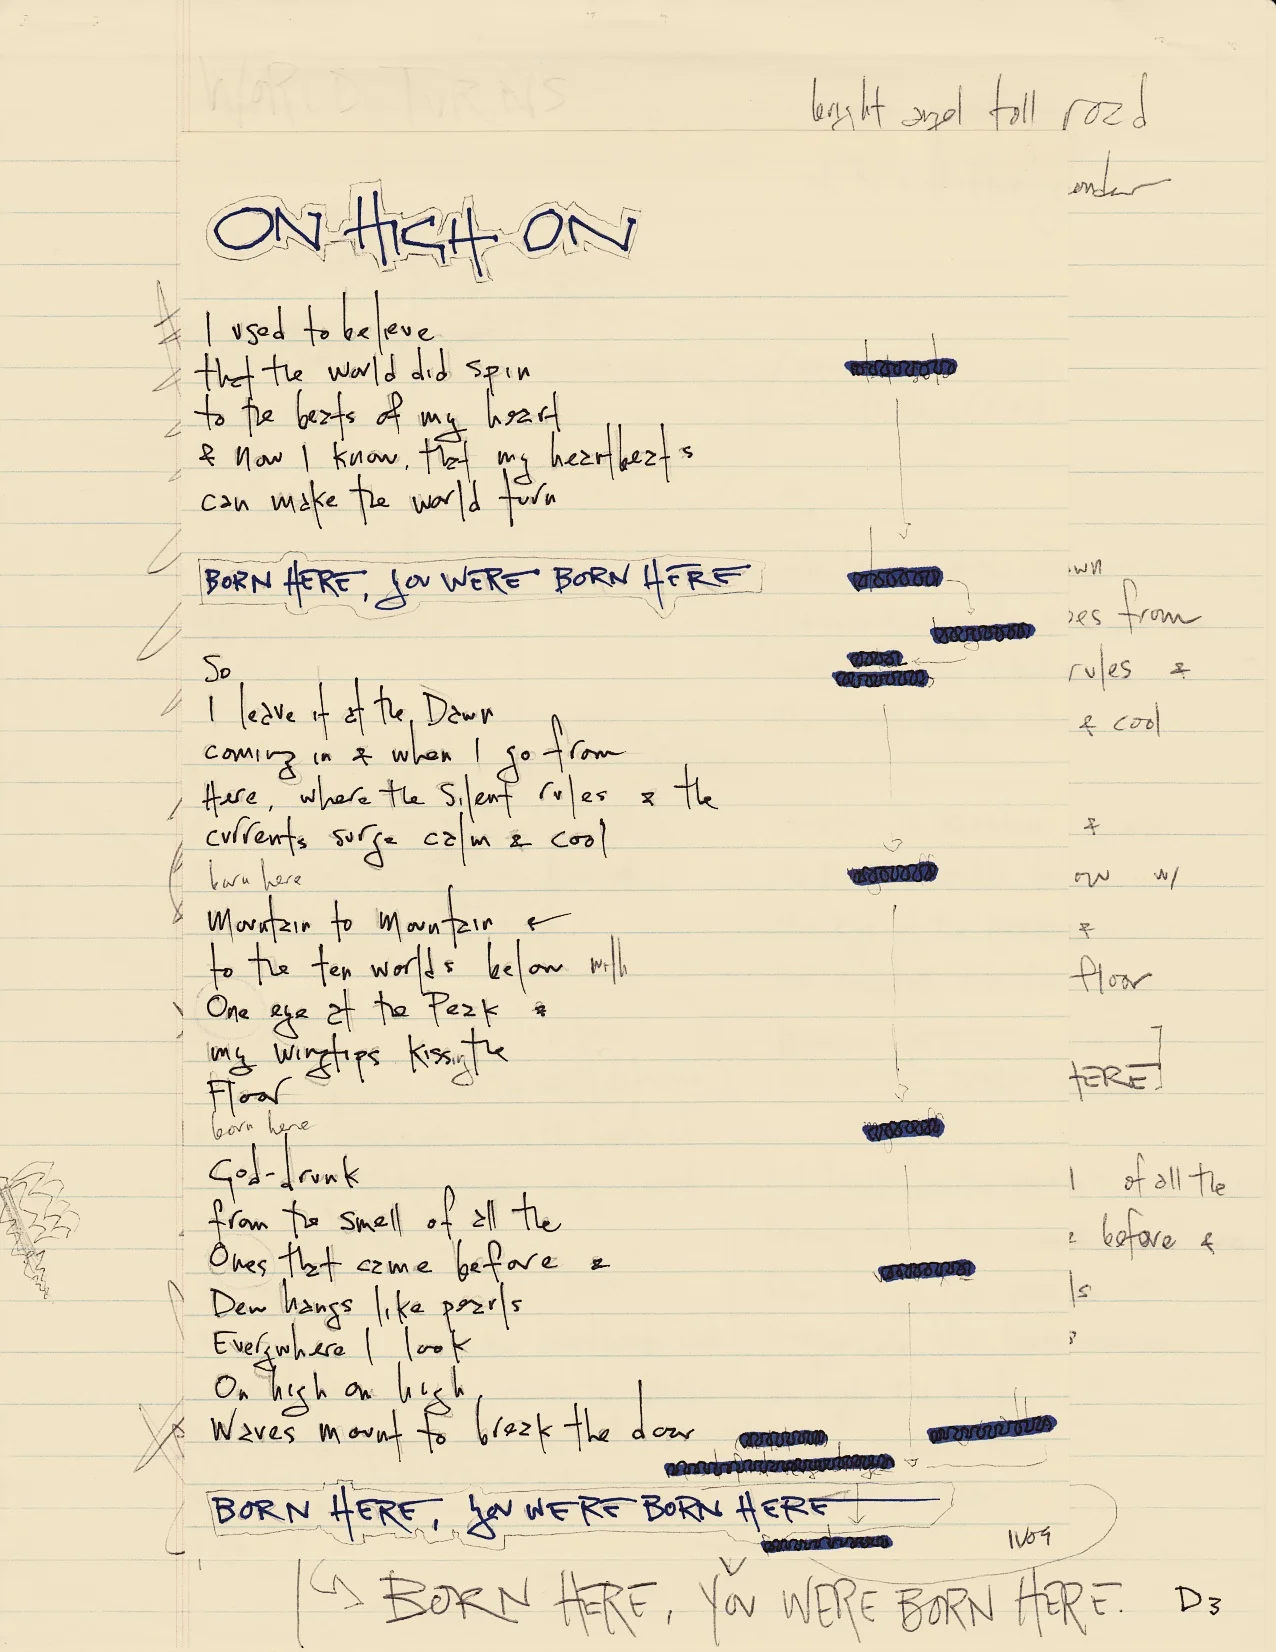 bright angel toll road
ON HIGH ON
I used to believe
that the world did spin
to the beats of my heart
& now I know, that my heartbeats
can make the world turn
BORN HERE, you WERE BORN HERE
So
I leave it at the Dawn
coming in & when I go from
Here, where the Silent rules & the
currents surge calm & cool
born here
Mountain to Mountain ←
to the ten worlds below with
One eye at the Peak &
my wingtips kissing the
Floor
born here
God-drunk
from the smell of all the
Ones that came before &
Dew hangs like pearls
Everywhere I look
On high on high,
Waves mount to break the door
BORN HERE, you WERE BORN HERE
11/09
↪ BORN HERE, YOU WERE BORN HERE.
D3
wn
es from
rules &
& cool
&
ow w/
&
floor
HERE]
l of all the
before &
ls